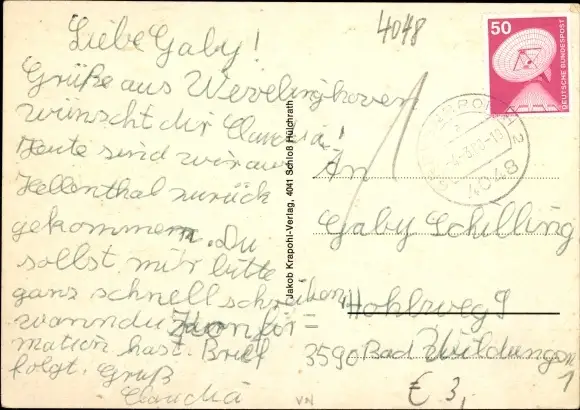 Liebe Gaby!
Grüße aus Wevelinghoven
wünscht dir Claudia!
Heute sind wir aus
Hellenthal zurück
gekommen. Du
sollst mir bitte
ganz schnell schreiben,
wann du Konfir
mation hast. Brief
folgt. Gruß
Claudia
Jakob Krapohl-Verlag, 4041 Schloß Hülchrath
4048
50
DEUTSCHE BUNDESPOST
4048
An
Gaby Schilling
Hohlweg 9
3590 Bad Wildungen
1
€ 3,
VN